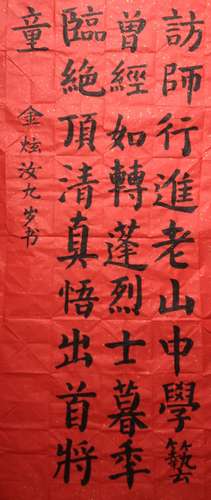 訪師行進老山中學藝
曾經如轉蓬烈士暮年
臨絶頂清真悟出首將
童
金炫汝九岁书